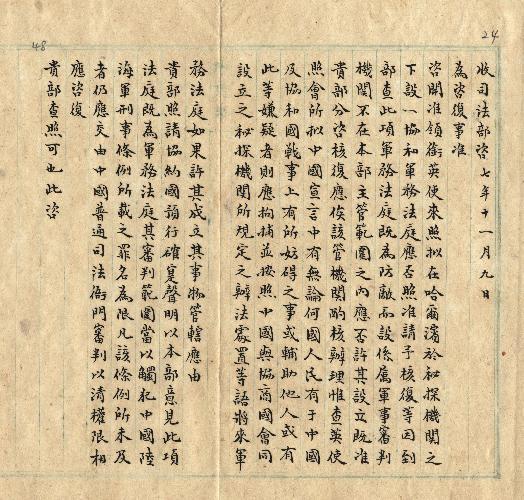 24
收司法部咨 七年十一月九日
為咨復事准
咨開准領銜英使來照拟在哈爾濱於秘探機関之
下設一協和軍務法庭應否照准請予核復等因到
部查此項軍務法庭既為防敵而設係属軍事審判
機関不在本部主管範圍之内應否許其設立既准
貴部分咨核復應俟該管機関酌核辦理惟查英使
照會所拟中國宣言中有無論何國人民有于中國
及協和國戰事上有所妨碍之事或輔助他人或有
此等嫌疑者則應拘捕並按照中國與協商國會同
設立之秘探機関所規定之辦法處置等語將來軍
48
務法庭如果許其成立其事物管轄應由
貴部照請協約國預行確复聲明以本部意見此項
法庭既為軍務法庭其審判範圍當以觸犯中國陸
海軍刑事條例所載之罪名為限凡該條例所未及
者仍應交由中國普通司法衙門審判以清權限相
應咨復
貴部查照可也此咨